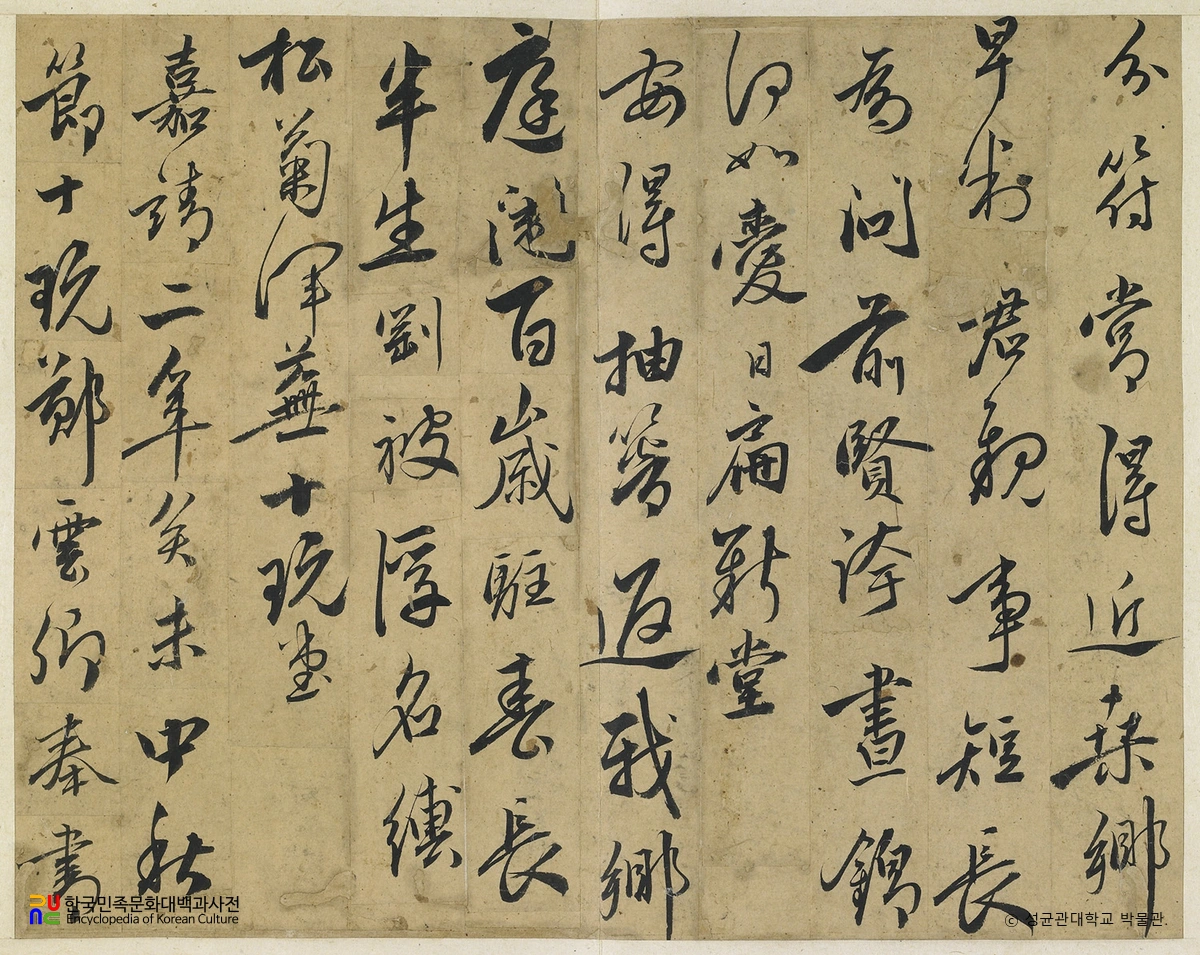 分符當得近桑鄉
早判君親事短長
爲問前賢誇晝錦
何如愛日扁新堂
安得抽簪返我鄉
庭闈百歲駐春長
半生剛被浮名縛
松菊渾蕪十玩堂
嘉靖二年癸未中秋
節十玩鄭雲卿奉書
한국민족문화대백과사전
Encyclopedia of Korean Culture
ⓒ 성균관대학교 박물관.